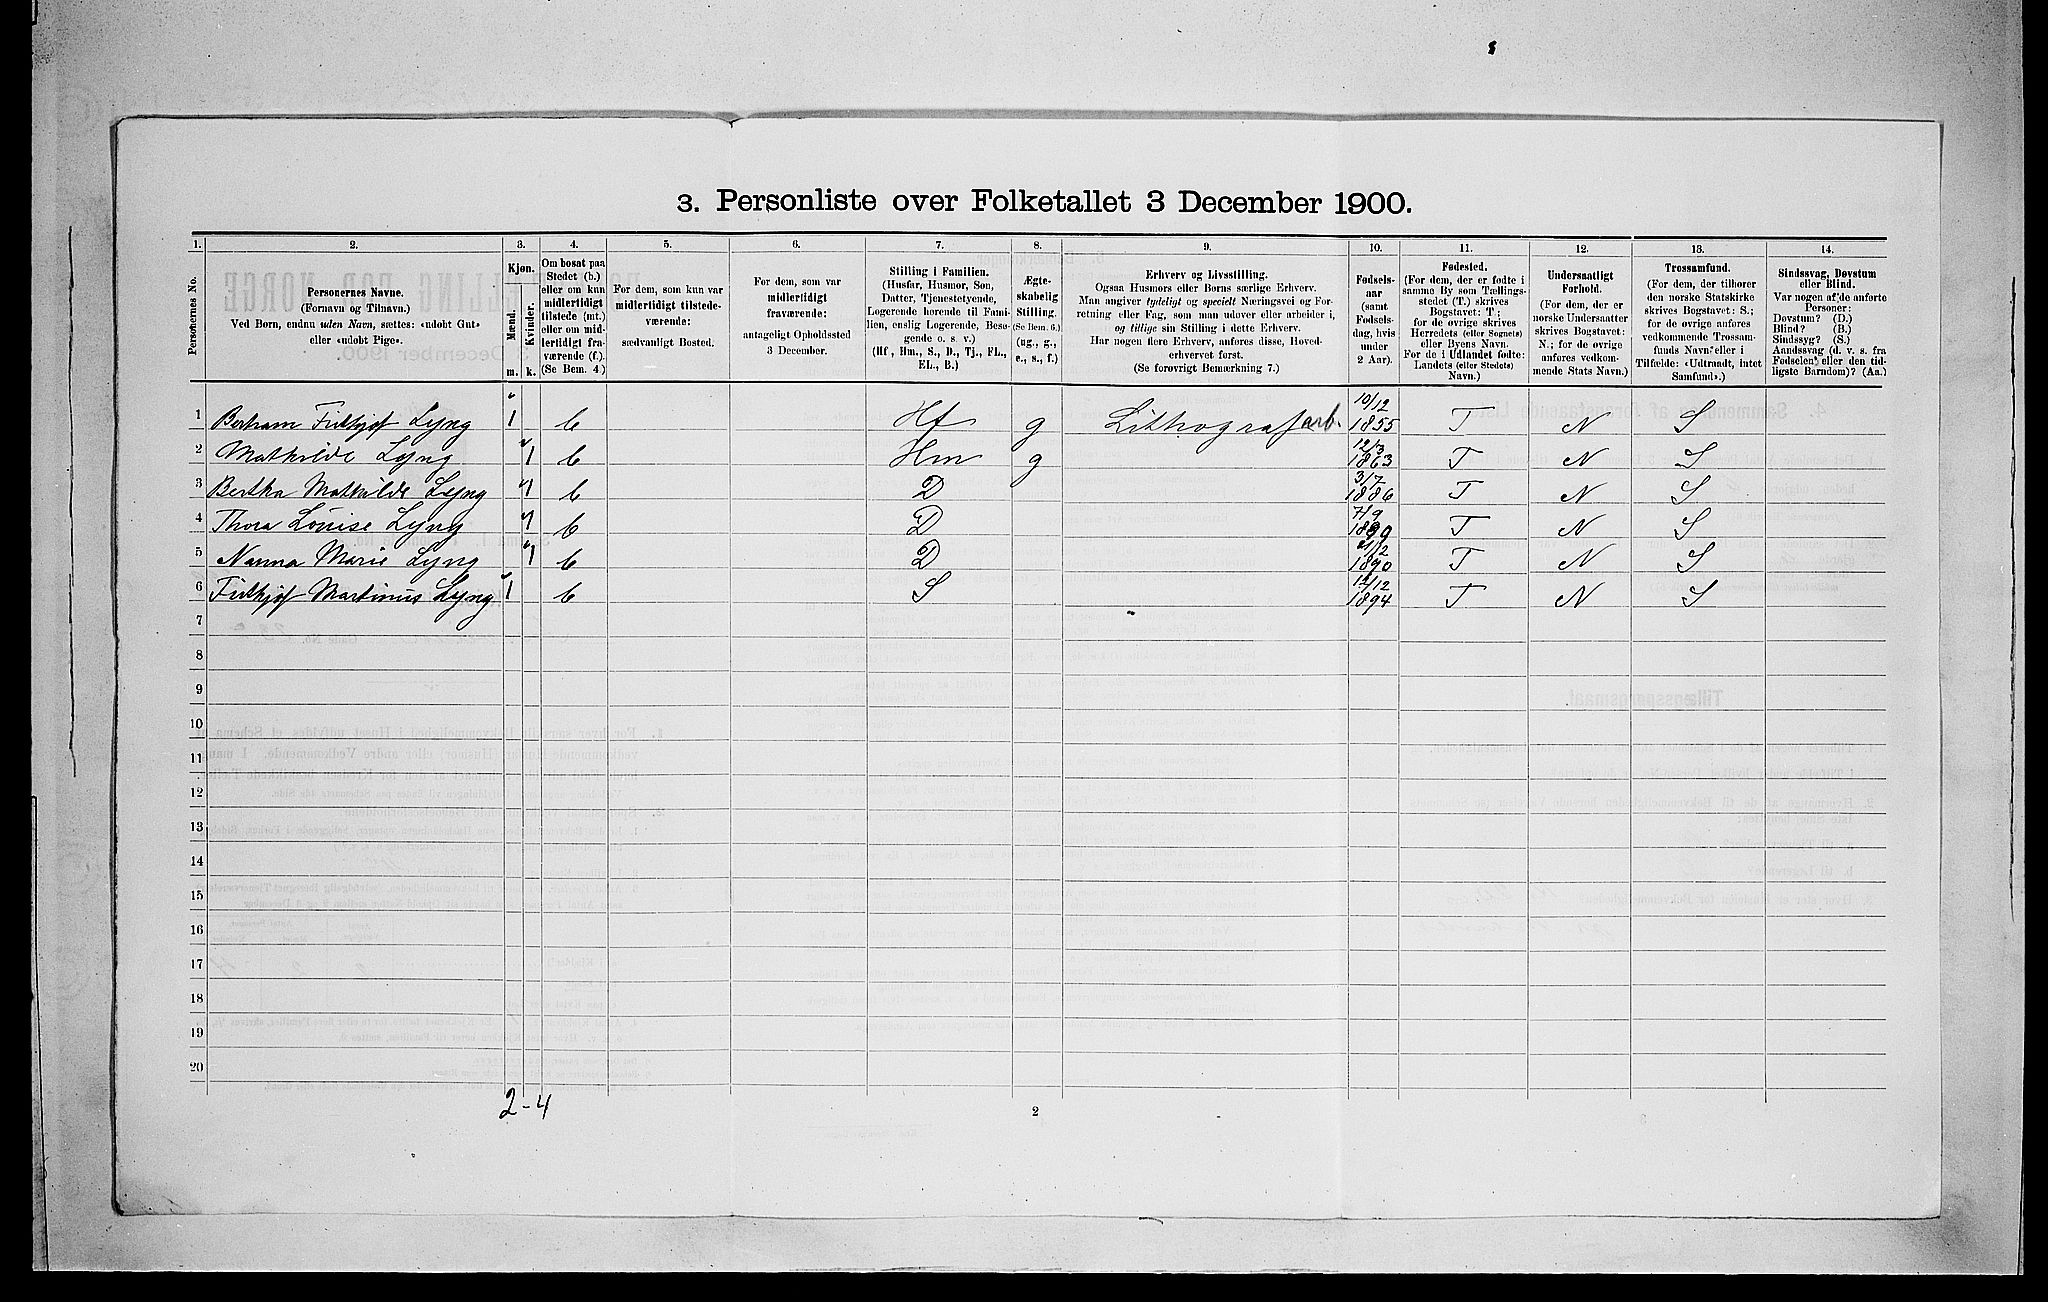 3. Personliste over Folketallet 3 December 1900.
1. 2. 3. 4. 5. 6. 7. 8. 9. 10. 11. 12. 13. 14.
Personernes No.
Personernes Navne.
(Fornavn og Tilnavn.)
Ved Børn, endnu uden Navn, sættes: «udøbt Gut»
eller «udøbt Pige».
Kjøn.
Mænd. Kvinder.
m. k.
Om bosat paa
Stedet (b.)
eller om kun
midlertidigt
tilstede (mt.)
eller om mid-
lertidigt fra-
værende (f.).
(Se Bem. 4.)
For dem, som kun var
midlertidigt tilstede-
værende:
sædvanligt Bosted.
For dem, som var
midlertidigt
fraværende:
antageligt Opholdssted
3 December.
Stilling i Familien.
(Husfar, Husmor, Søn,
Datter, Tjenestetyende,
Logerende hørende til Fami-
lien, enslig Logerende, Besø-
gende o. s. v.)
(Hf, Hm., S., D., Tj., FL.,
EL., B.)
Ægte-
skabelig
Stilling.
(Se Bem. 6.)
(ug., g.,
e., s., f.)
Erhverv og Livsstilling.
Ogsaa Husmors eller Børns særlige Erhverv.
Man angiver tydeligt og specielt Næringsvei og For-
retning eller Fag, som man udøver eller arbeider i,
og tillige sin Stilling i dette Erhverv.
Har nogen flere Erhverv, anføres disse, Hoved-
erhvervet først.
(Se forøvrigt Bemærkning 7.)
Fødsels-
aar
(samt
Fødsels-
dag, hvis
under
2 Aar).
Fødested.
(For dem, der er fødte i
samme By som Tællings-
stedet (T.) skrives
Bogstavet: T.;
for de øvrige skrives
Herredets (eller Sognets)
eller Byens Navn.
For de i Udlandet fødte:
Landets (eller Stedets)
Navn.)
Undersaatligt
Forhold.
(For dem, der er
norske Undersaatter
skrives Bogstavet:
N.; for de øvrige
anføres vedkom-
mende Stats Navn.)
Trossamfund.
(For dem, der tilhører
den norske Statskirke
skrives Bogstavet: S.;
for de øvrige anføres
vedkommende Trossam-
funds Navn eller i
Tilfælde: «Udtraadt, intet
Samfund».)
Sindssvag, Døvstum
eller Blind.
Var nogen af de anførte
Personer:
Døvstum? (D.)
Blind? (B.)
Sindssyg? (S.)
Aandssvag (d. v. s. fra
Fødselen eller den tid-
ligste Barndom)? (Aa.)
1 Bertram Fridthjof Lyng 1 b Hf g Lithografarb. 10/12 1855 T N S
2 Mathilde Lyng 1 b Hm g 12/3 1863 T N S
3 Bertha Mathilde Lyng 1 b D 3/7 1886 T N S
4 Thora Louise Lyng 1 b D 7/9 1889 T N S
5 Nanna Marie Lyng 1 b D 1890 T N S
6 Fridthjof Martinus Lyng 1 b S 12/12 1894 T N S
7
8
9
10
11
12
13
14
15
16
17
18
19
20
2-4
2